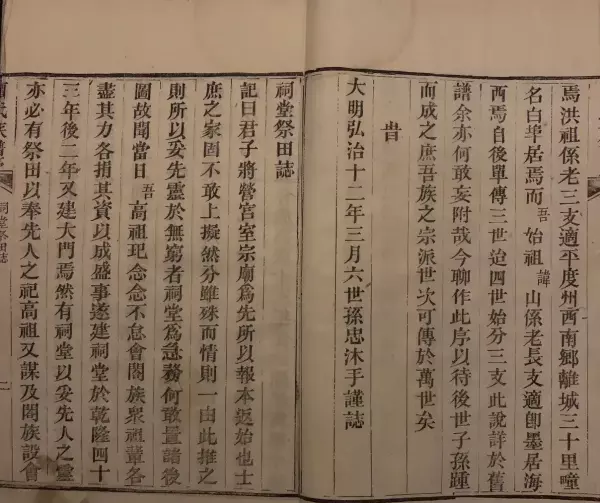 焉洪祖係老三支適平度州西南鄉離城三十里疃
名白埠居焉而吾始祖諱山係老長支適卽墨居海
西焉自後單傳三世迨四世始分三支此說詳於舊
譜余亦何敢妄附哉今聊作此序以待後世子孫踵
而成之庶吾族之宗派世次可傳於萬世矣
旹
大明弘治十二年三月六世孫忠沐手謹誌
祠堂祭田誌
記曰君子將營宮室宗廟爲先所以報本返始也士
庶之家固不敢上擬然分雖殊而情則一由此推之
則所以妥先靈於無窮者祠堂爲急務何敢置諸後
圖故聞當日吾高祖玘念念不怠會閤族衆祖輩各
盡其力各捐其資以成盛事遂建祠堂於乾隆四十
三年後二年又建大門焉然有祠堂以妥先人之靈
亦必有祭田以奉先人之祀高祖又謀及閤族設會
氏族譜
祠堂祭田誌